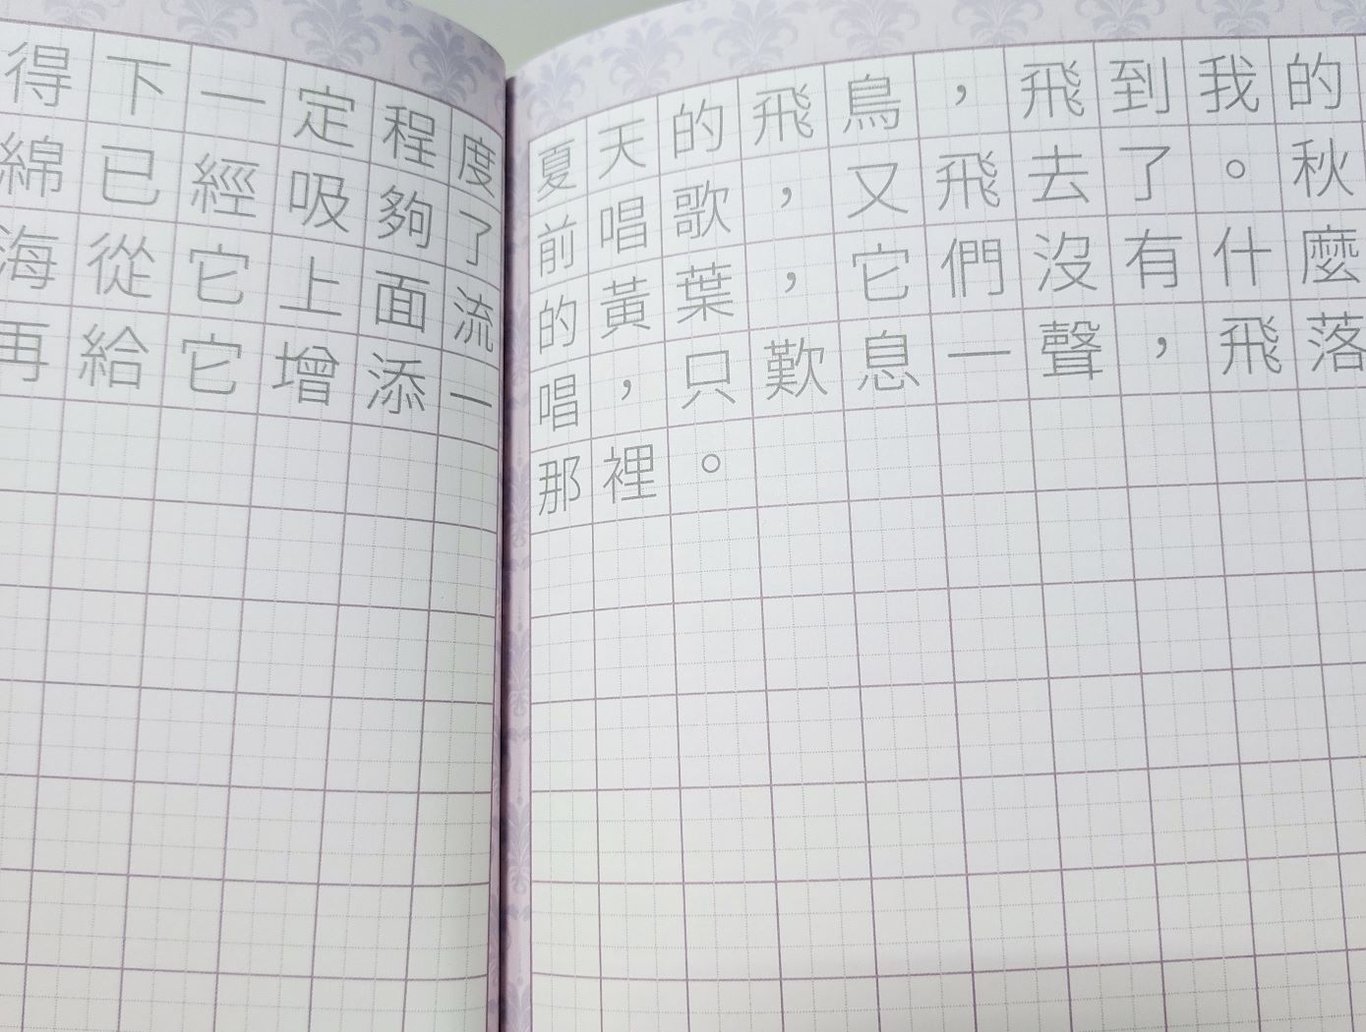 得下一定程度
綿已經吸夠了
海從它上面流
再給它增添一
夏天的飛鳥，飛到我的
前唱歌，又飛去了。秋
的黃葉，它們沒有什麼
唱，只歎息一聲，飛落
那裡。